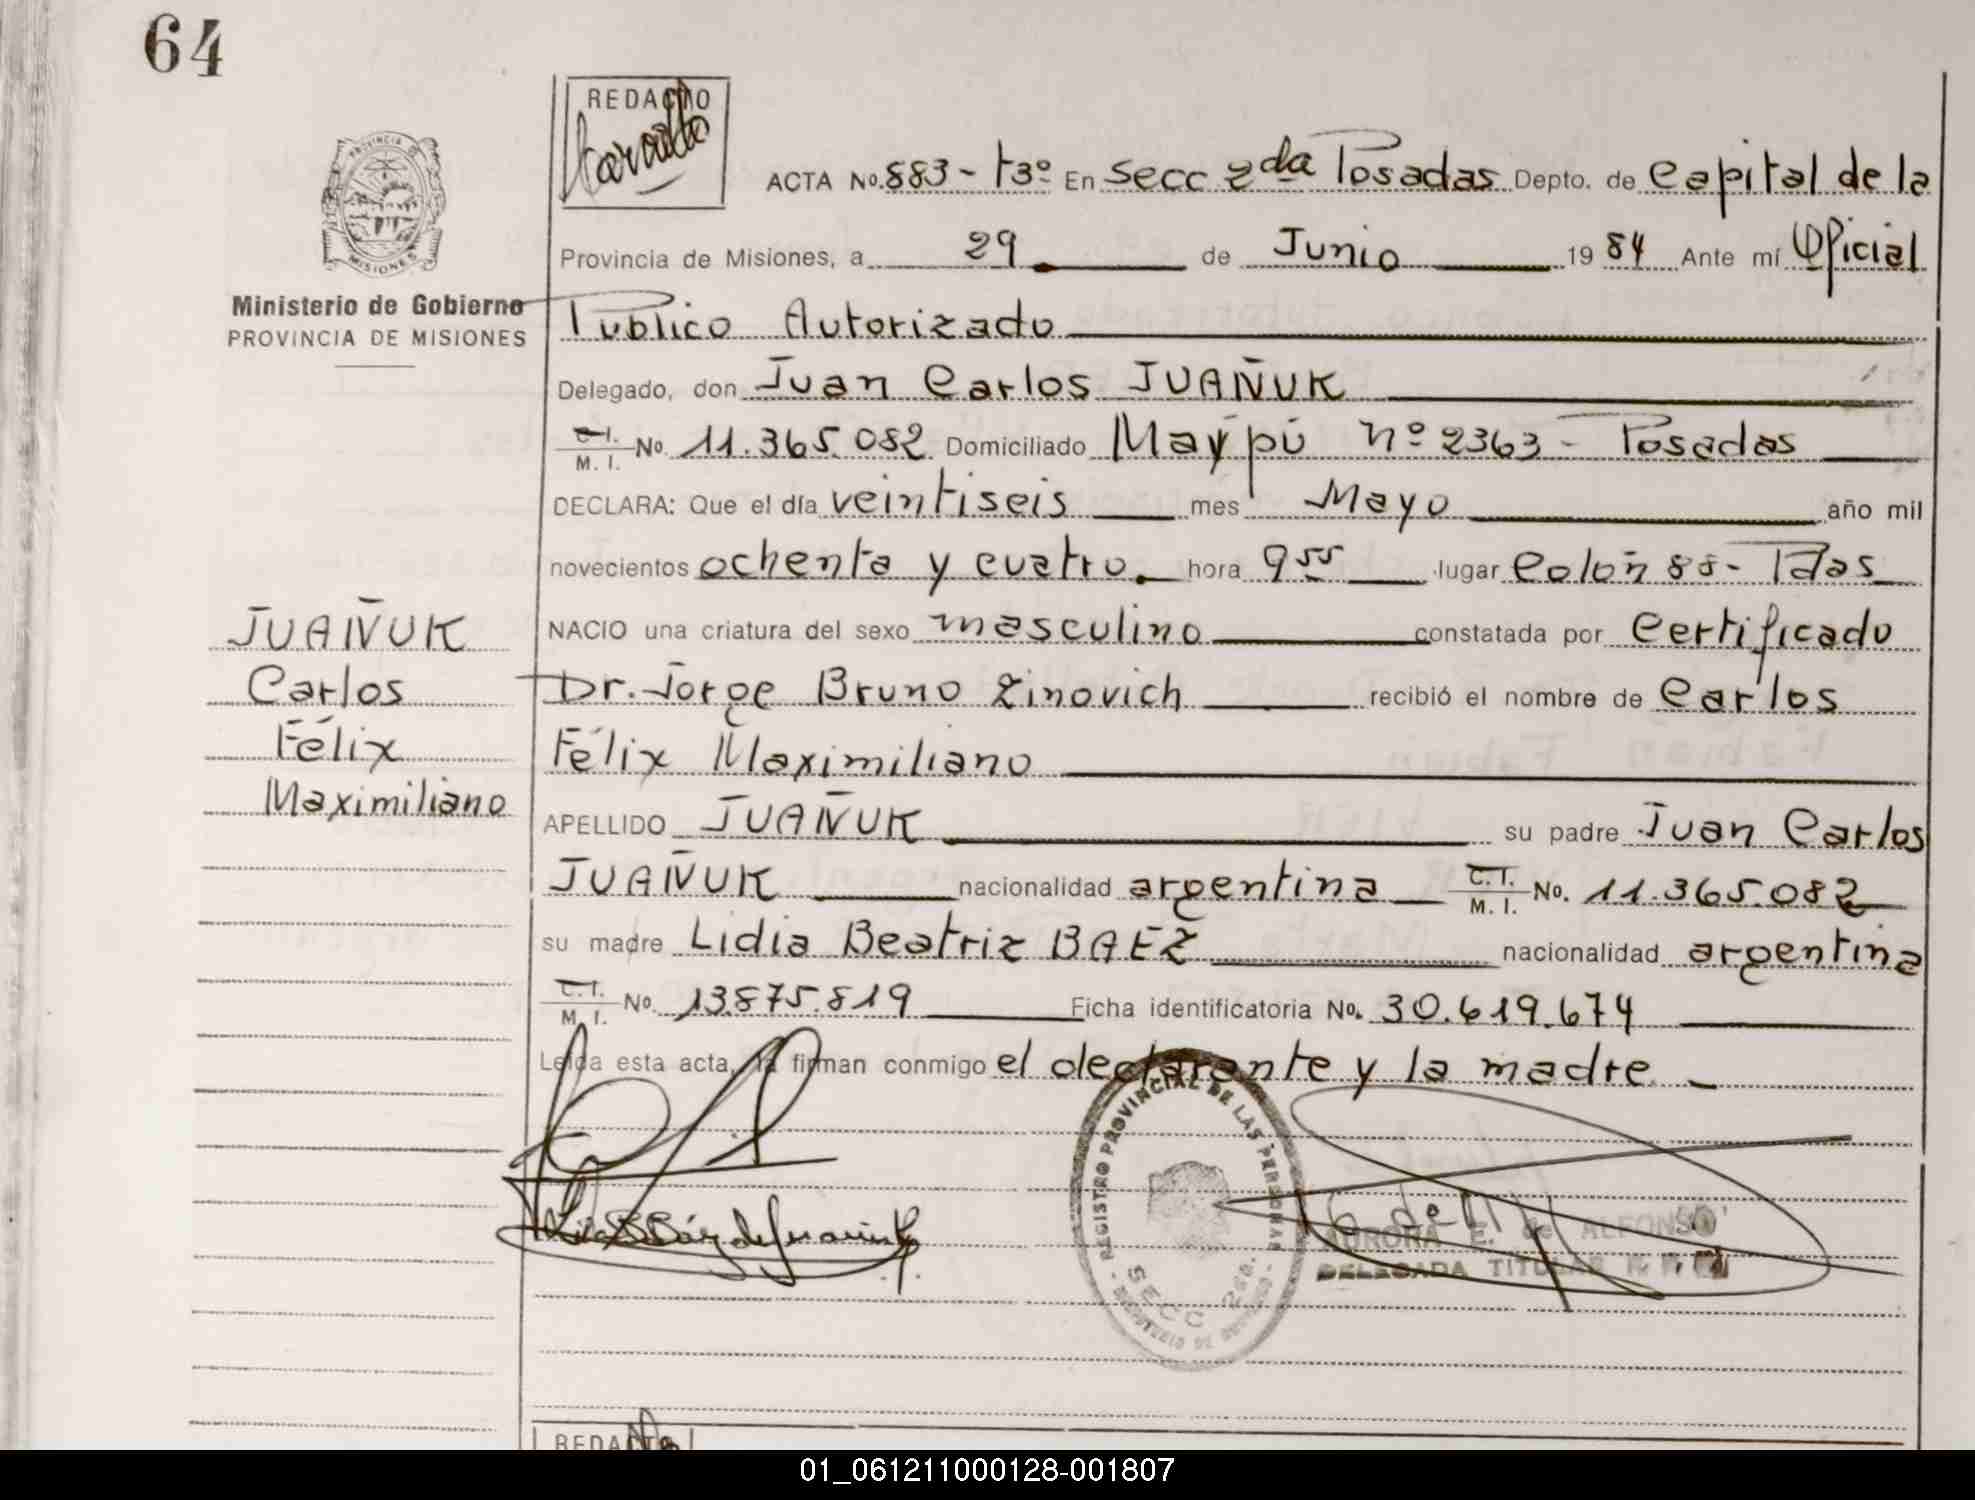 64
REDACTO
PROVINCIA D
MISIONES
Ministerio de Gobierno
PROVINCIA DE MISIONES
ACTA No. 883 - t3º En Secc 2da Posadas Depto. de Capital de la
Provincia de Misiones, a 29 de Junio 1984 Ante mí Oficial
Publico Autorizado
Delegado, don Juan Carlos JUAÑUK
C.I. M. I. No. 11.365.082 Domiciliado Maypú nº 2363 - Posadas
DECLARA: Que el día veintiseis mes Mayo año mil
novecientos ochenta y cuatro. hora 9 55 lugar Colón 88 - Pdas
NACIO una criatura del sexo masculino constatada por Certificado
Dr. Jorge Bruno Zinovich recibió el nombre de Carlos
Félix Maximiliano
APELLIDO JUAÑUK su padre Juan Carlos
JUAÑUK nacionalidad argentina C.I. M. I. No. 11.365.082
su madre Lidia Beatriz BAEZ nacionalidad argentina
C.I. M. I. No. 13.875.819 Ficha identificatoria No. 30.619.674
Leída esta acta, la firman conmigo el declarante y la madre. -
JUAÑUK
Carlos
Félix
Maximiliano
REGISTRO PROVINCIAL DE LAS PERSONAS
SECC 2da.
AURORA E. de ALFONSO
DELEGADA TITULAR
REDACTO
01_061211000128-001807